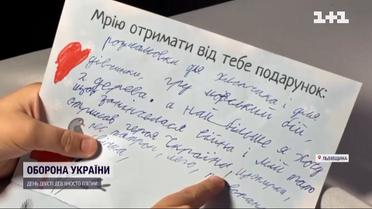 1+1
Мрію отримати від тебе подарунок:
розмальовки для хлопчика і для
дівчинки, гру морський бій,
з дерева. а най більше я хочу
щоб закінчилася війна і мій тато
отримав героя України,
пес патрон,
ЛЬВІВЩИНА
ОБОРОНА УКРАЇНИ
ДЕНЬ ДВІСТІ ДЕВ'ЯНОСТО П'ЯТИЙ